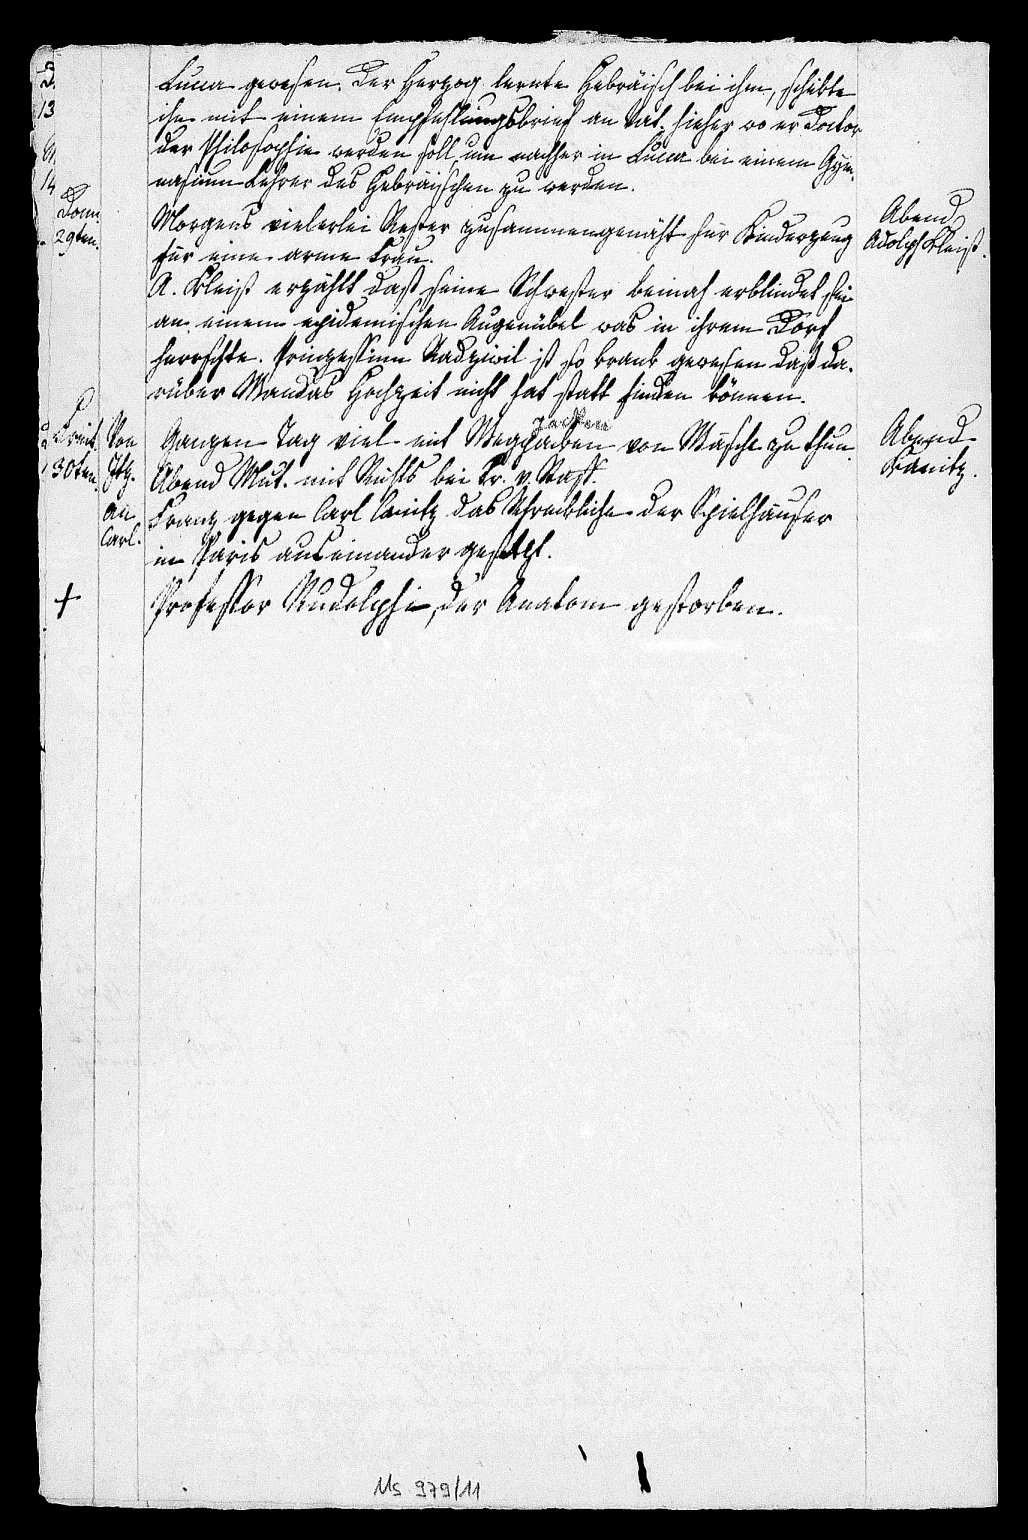 D.
13
14
Lucca gewesen. Der Herzog lernte Hebräisch bei ihm, schikte
ihn mit einem Empfehlungsbrief an Vat. hieher wo er Doctor
der Philosophie werden soll, um nachher in Lucca bei einem Gym-
nasium Lehrer des Hebräischen zu werden.
Donn.
29ten.
Morgens vielerlei Rester zusammengenäht für Kinderzeug
für eine arme Frau.
Abend
Adolph Kleist.
A. Kleist erzählt daß seine Schwester beinah erblindet sei
an einem epidemischen Augenübel was in ihrem Dorf
herrschte. Prinzessinn Radziwil ist so krank gewesen daß da-
rüber Wandas Hochzeit nicht hat statt finden können.
Freit.
30ten.
Von
Itz.
an
Carl.
Ganzen Tag viel mit Weg packen von Wäsche zu thun.
Abend Mut. mit Rusts bei Fr. v.
Franz gegen Carl Canitz das Schreckliche der Spielhäuser
in Paris auseinander gesetzt.
Abend
Kanitz.
+
Professor Rudolphi, der Anatom gestorben.
Ms 979/11